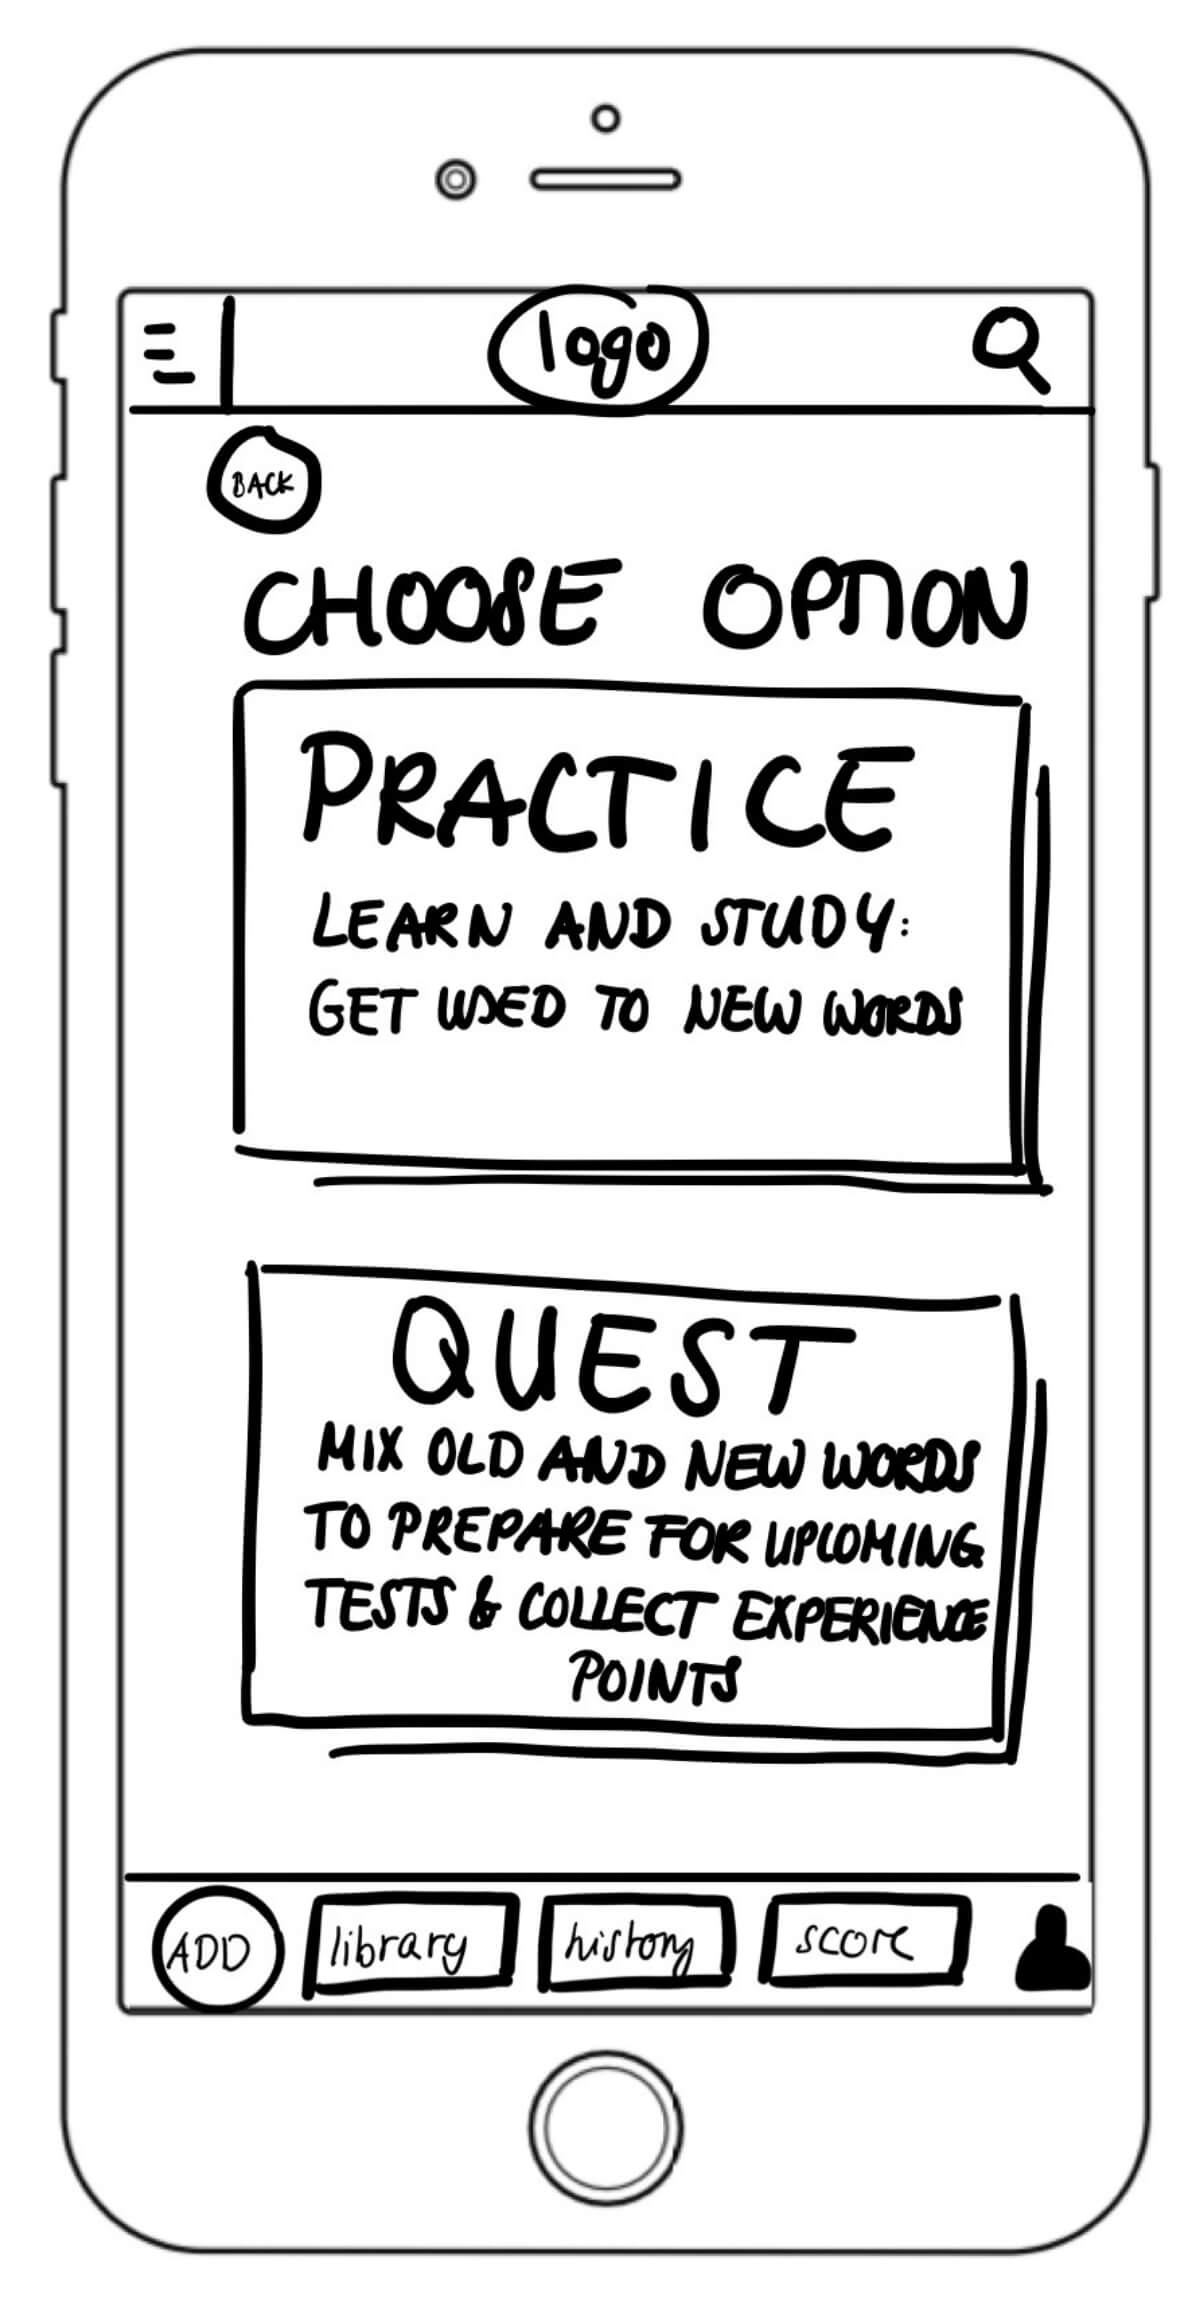 logo
BACK
CHOOSE OPTION
PRACTICE
LEARN AND STUDY:
GET USED TO NEW WORDS
QUEST
MIX OLD AND NEW WORDS
TO PREPARE FOR UPCOMING
TESTS & COLLECT EXPERIENCE
POINTS
ADD library history score